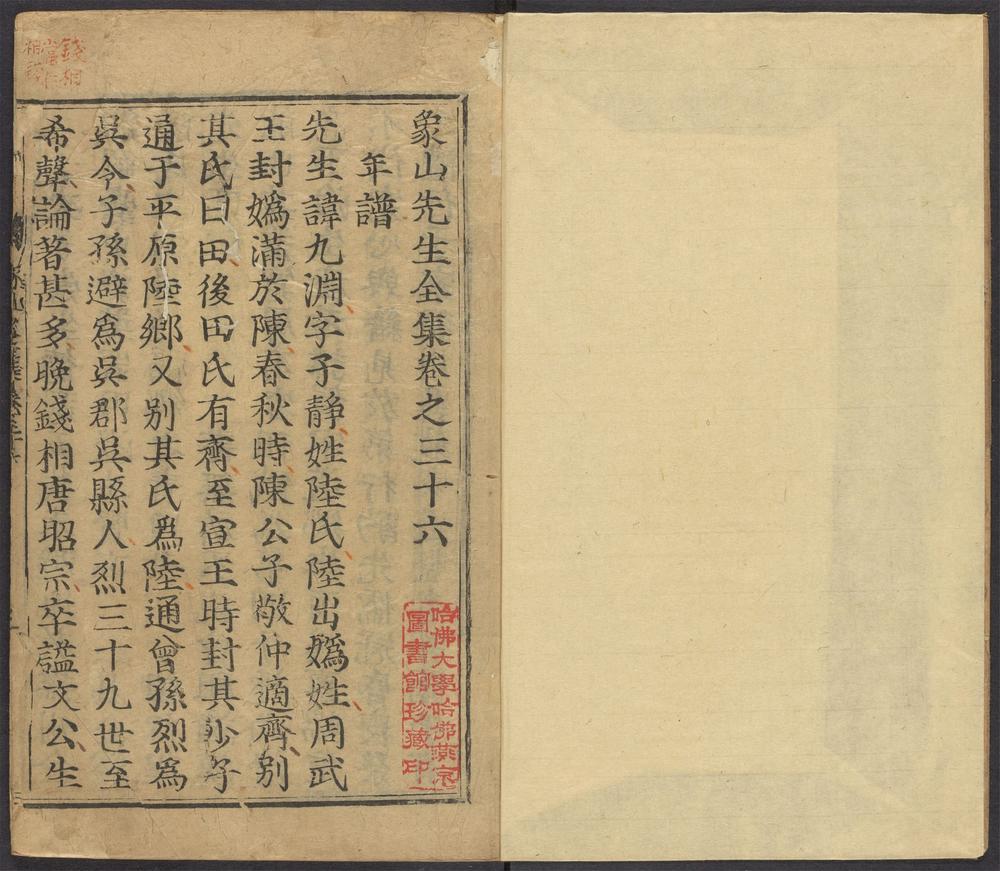 象山先生全集卷之三十六
年譜
先生諱九淵字子静姓陸氏陸出嬀姓周武
王封嬀滿於陳春秋時陳公子敬仲適齊别
其氏曰田後田氏有齊至宣王時封其少子
通于平原陸鄉又别其氏爲陸通曾孫烈爲
吳令子孫避爲吳郡吳縣人烈三十九世至
希聲論著甚多晚錢相唐昭宗卒謚文公生
哈佛大學哈佛燕京
圖書館珍藏印
錢相
當作
相